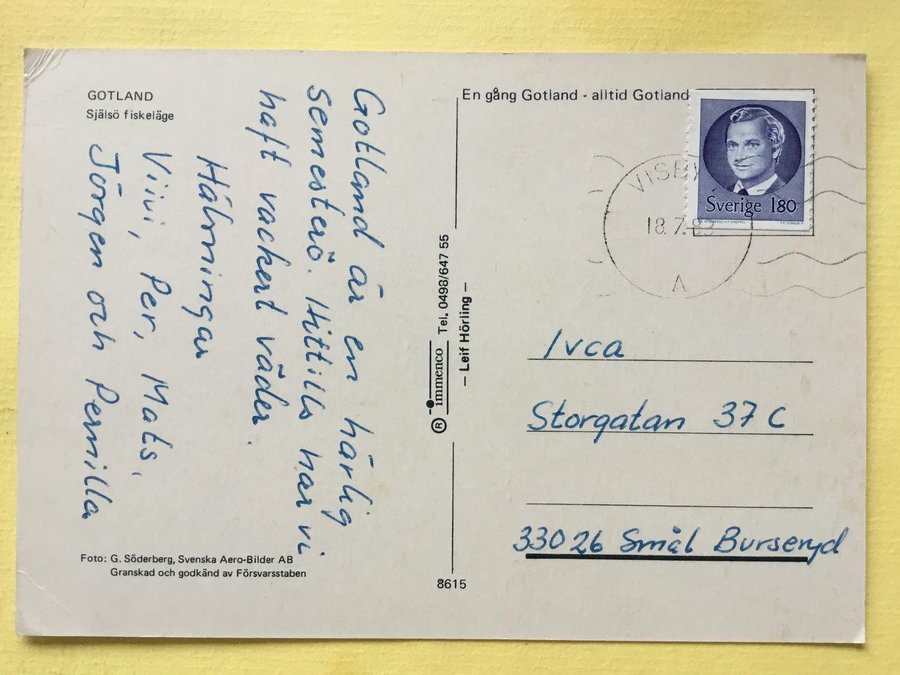 GOTLAND
Själsö fiskeläge
Gotland är en härlig
semesterö. Hittills har vi
haft vackert väder.
Hälsningar
Viivi, Per, Mats,
Jörgen och Pernilla
Foto: G. Söderberg, Svenska Aero-Bilder AB
Granskad och godkänd av Försvarsstaben
En gång Gotland - alltid Gotland
® immenco Tel. 0498/647 55
— Leif Hörling —
8615
VISBY
18.7.
A
Sverige 180
Ivca
Storgatan 37 C
33026 Smål Burseryd